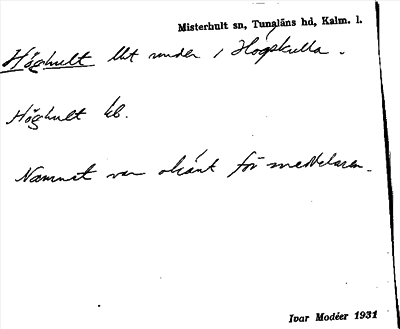 Misterhult sn, Tunaläns hd, Kalm. l.
Höghult lht under 1 Högskulla.
Höghult kb.
Namnet var okänt för meddelaren.
Ivar Modéer 1931